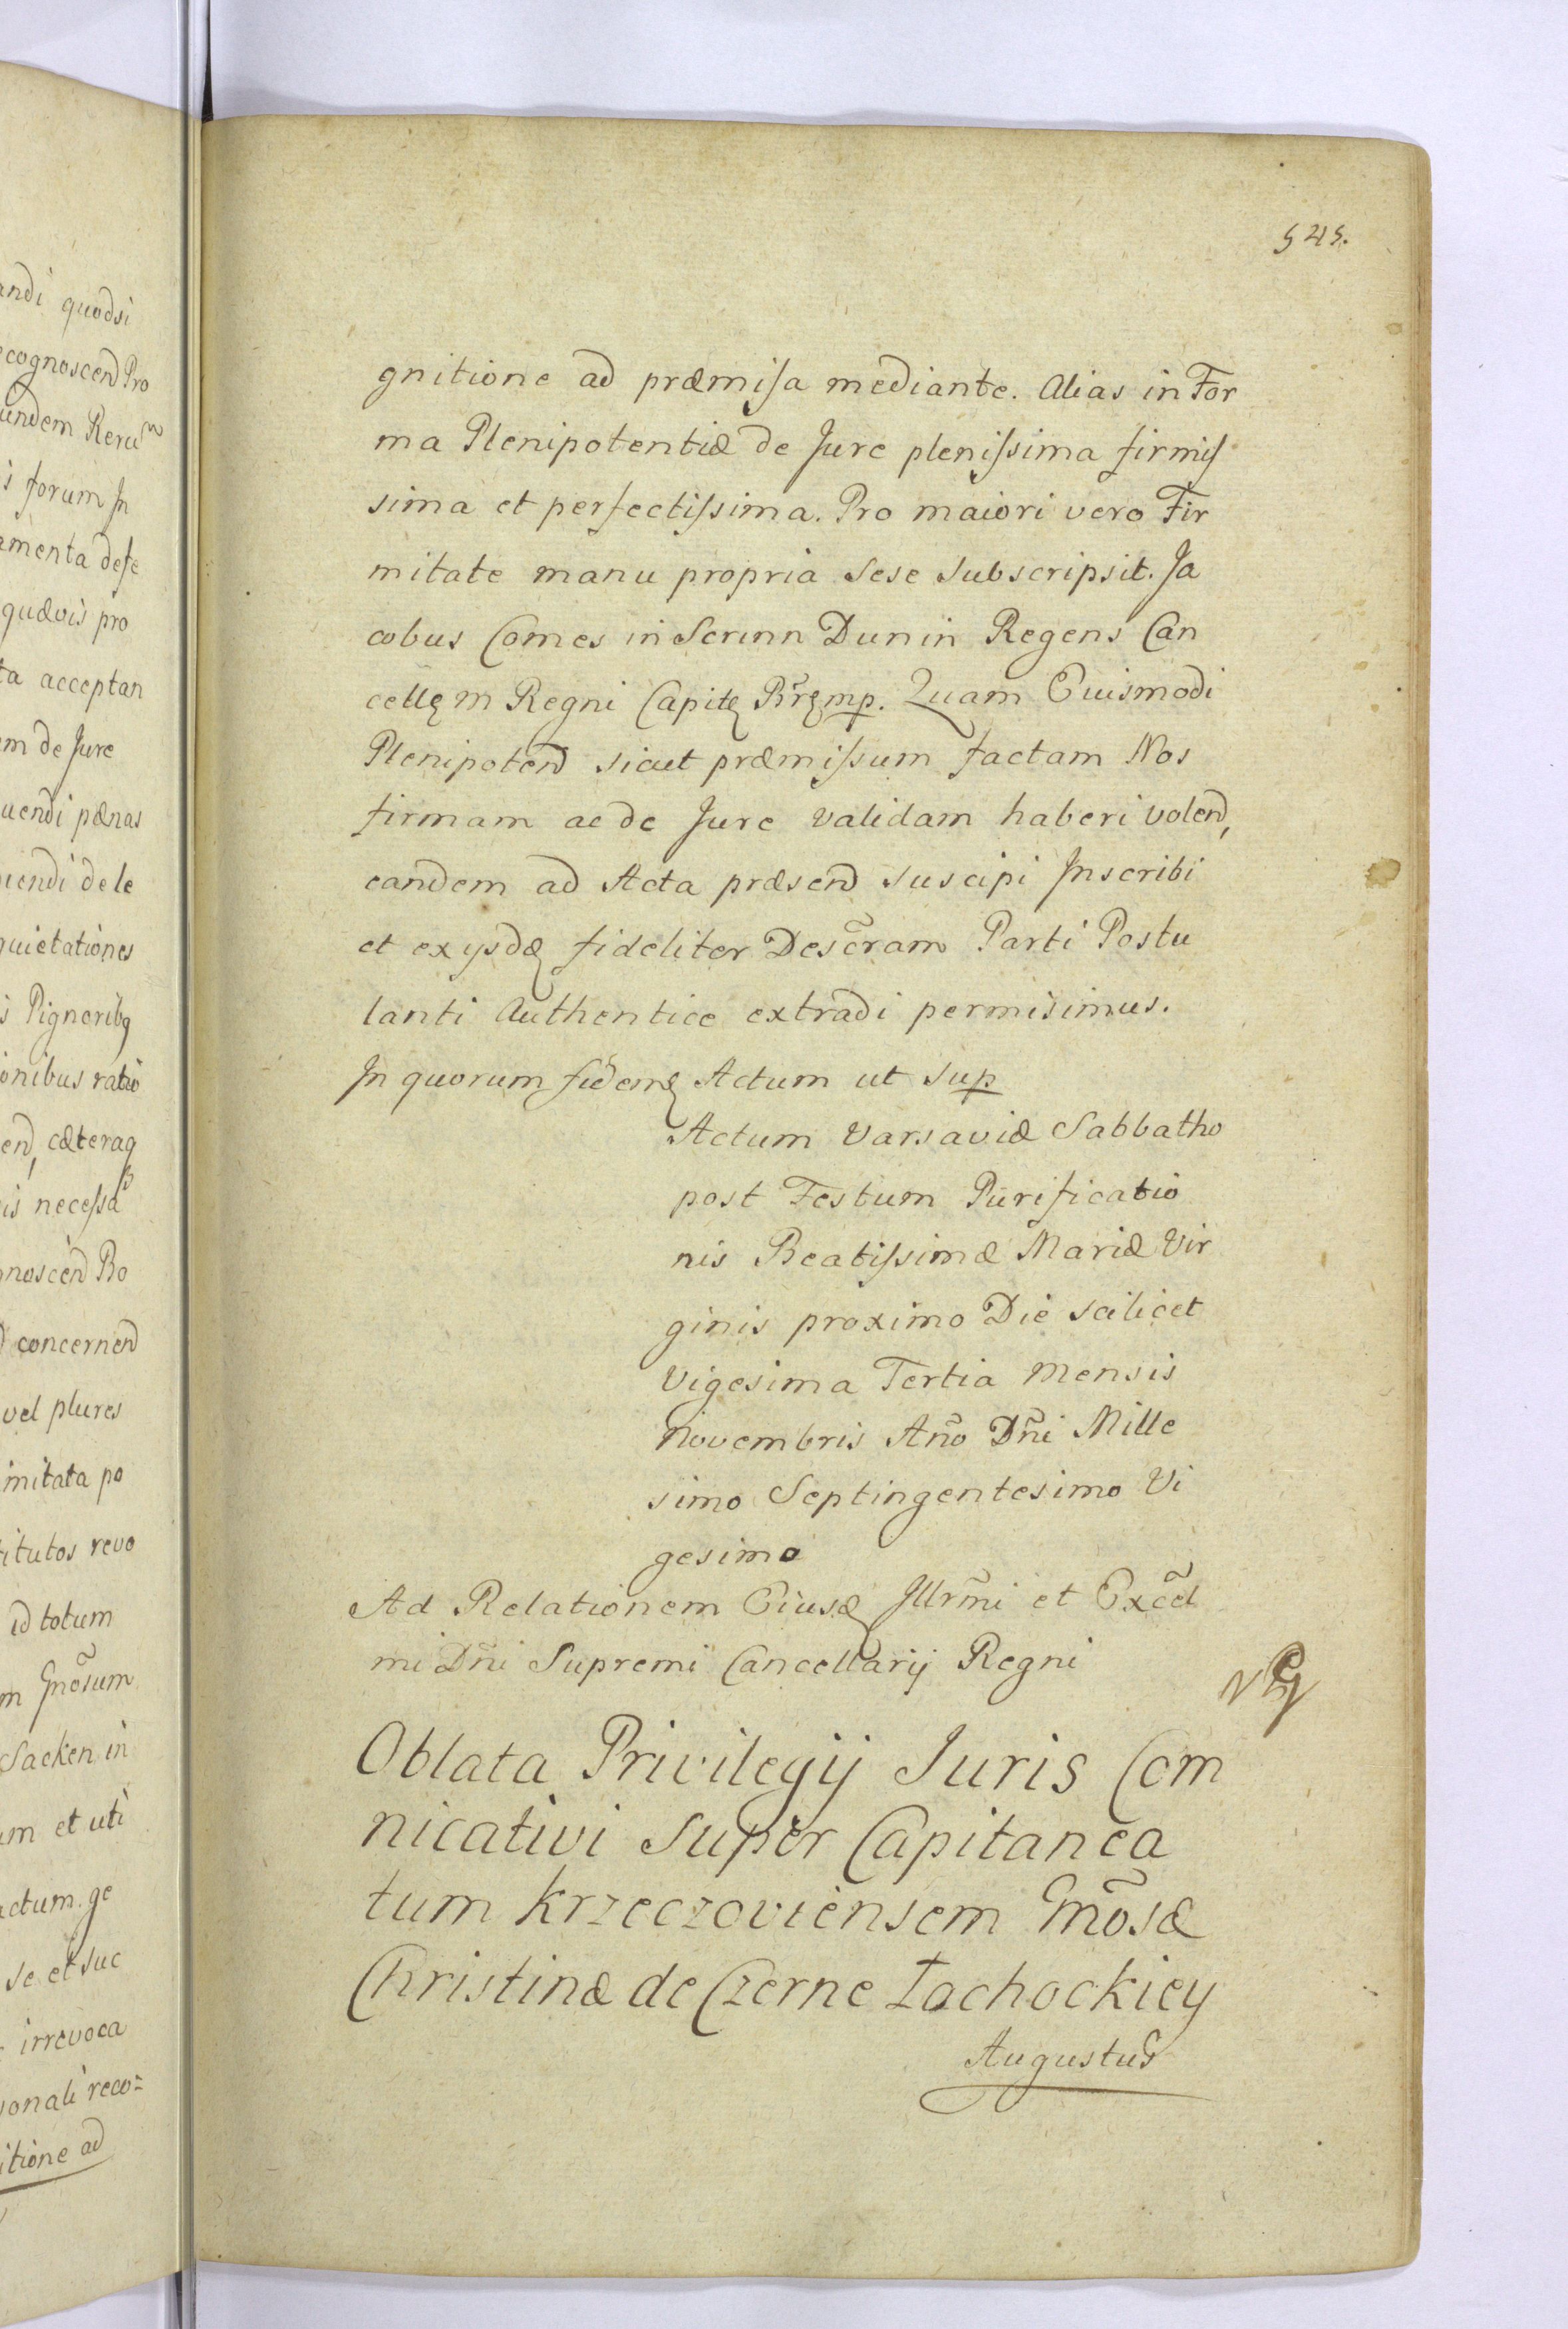 545.
gnitione ad præmisa mediante. Alias in For
ma Plenipotentiæ de Jure plenissima firmis
sima et perfectissima. Pro maiori vero Fir
mitate manu propria sese subscripsit. Ja
cobus Comes in Scrinn Dunin Regens Can
cellę m Regni Capitę mp. Quam Eiusmodi
Plenipotend sicut præmissum factam Nos
firmam ac de Jure validam haberi volend,
eandem ad Acta præsend suscipi Inscribi
et ex ysdę fideliter Descr̃am Parti Postu
lanti Authentice extradi permisimus.
In quorum fidemę Actum ut sup
Actum Varsaviæ Sabbatho
post Festum Purificatio
nis Beatissimæ Mariæ Vir
ginis proximo Die scilicet
Vigesima Tertia Mensis
Novembris Año Dñi Mille
simo Septingentesimo Vi
gesimo
Ad Relationem Eiusdę Illrm̃i et Excel̃
mi Dñi Supremi Cancellarij Regni
Oblata Privilegij Juris Com
nicativi Super Capitanea
tum Krzeczoviensem Gñosæ
Christinæ de Czerne Łochockiey
Augustus
andi quodsi
ecognoscend Pro
undem Reru᷉
s forum In
amenta defe
quævis pro
ta acceptan
m de Jure
uendi pænas
iendi de le
quietationes
s Pigneribq
ionibus ratio
end, cæteraq
is necessa
gnoscend Po
d concernend
vel plures
imitata po
titutos revo
id totum
m Gñosum
Sacken in
um et uti
actum ge
se et suc
irrevoca
ionali reco=
itione ad